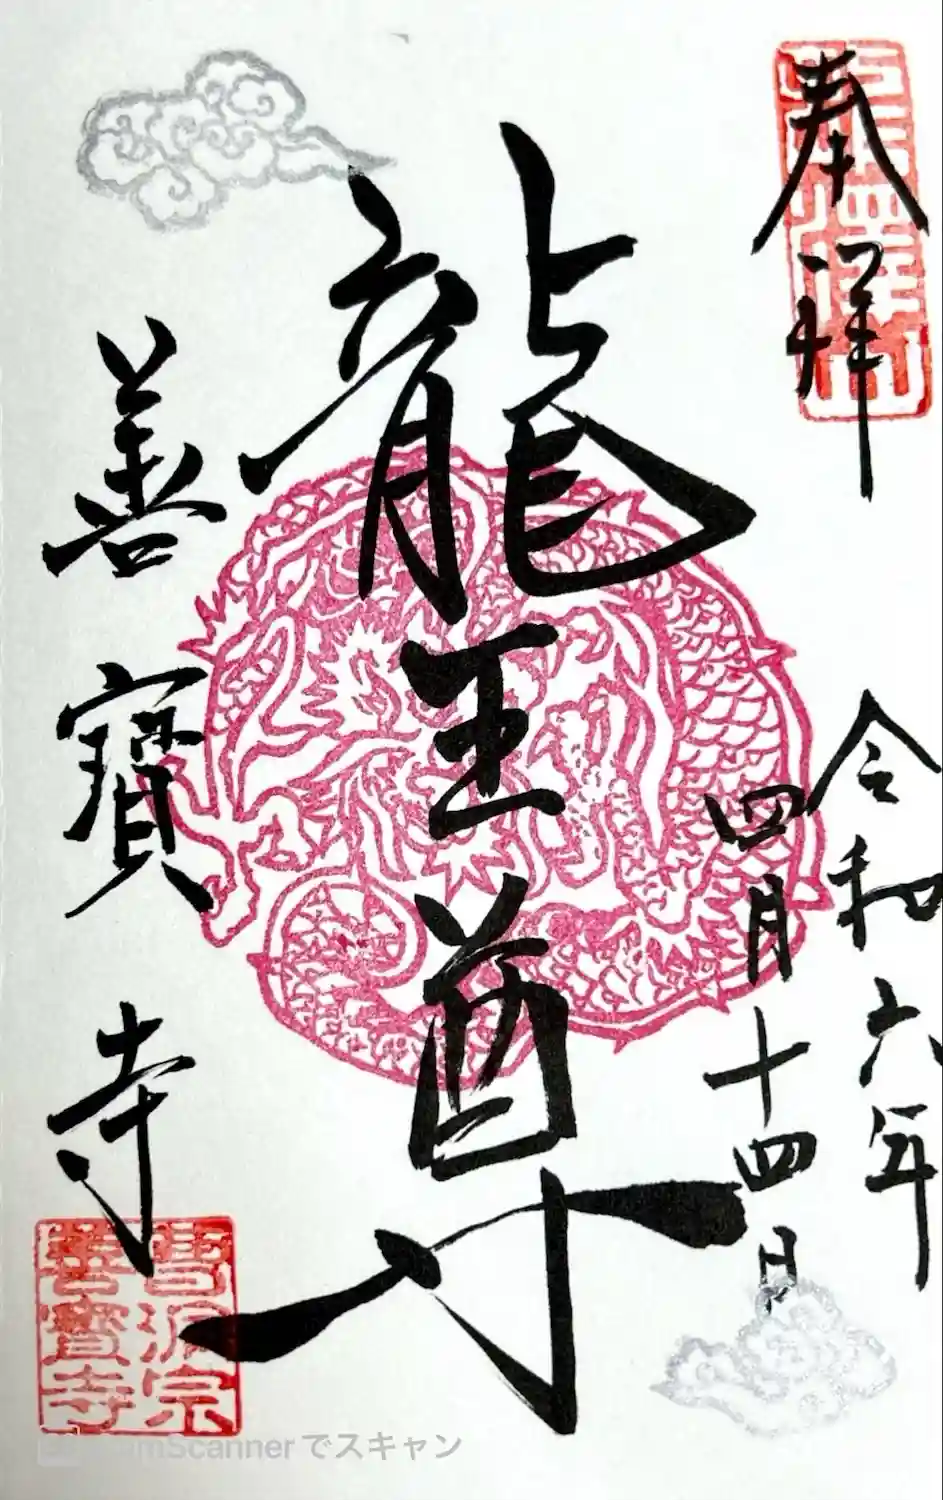 奉拝
令和六年
四月十四日
龍王尊
善寳寺
曹洞宗
善寳寺
Scanner でスキャン